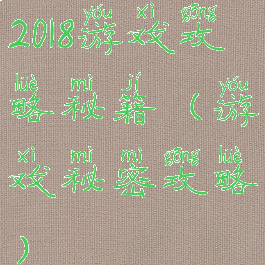 yóu xì gōng
2018游戏攻
lüè mì jí yóu
略秘籍（游
xì mì mì gōng lüè
戏秘密攻略
）